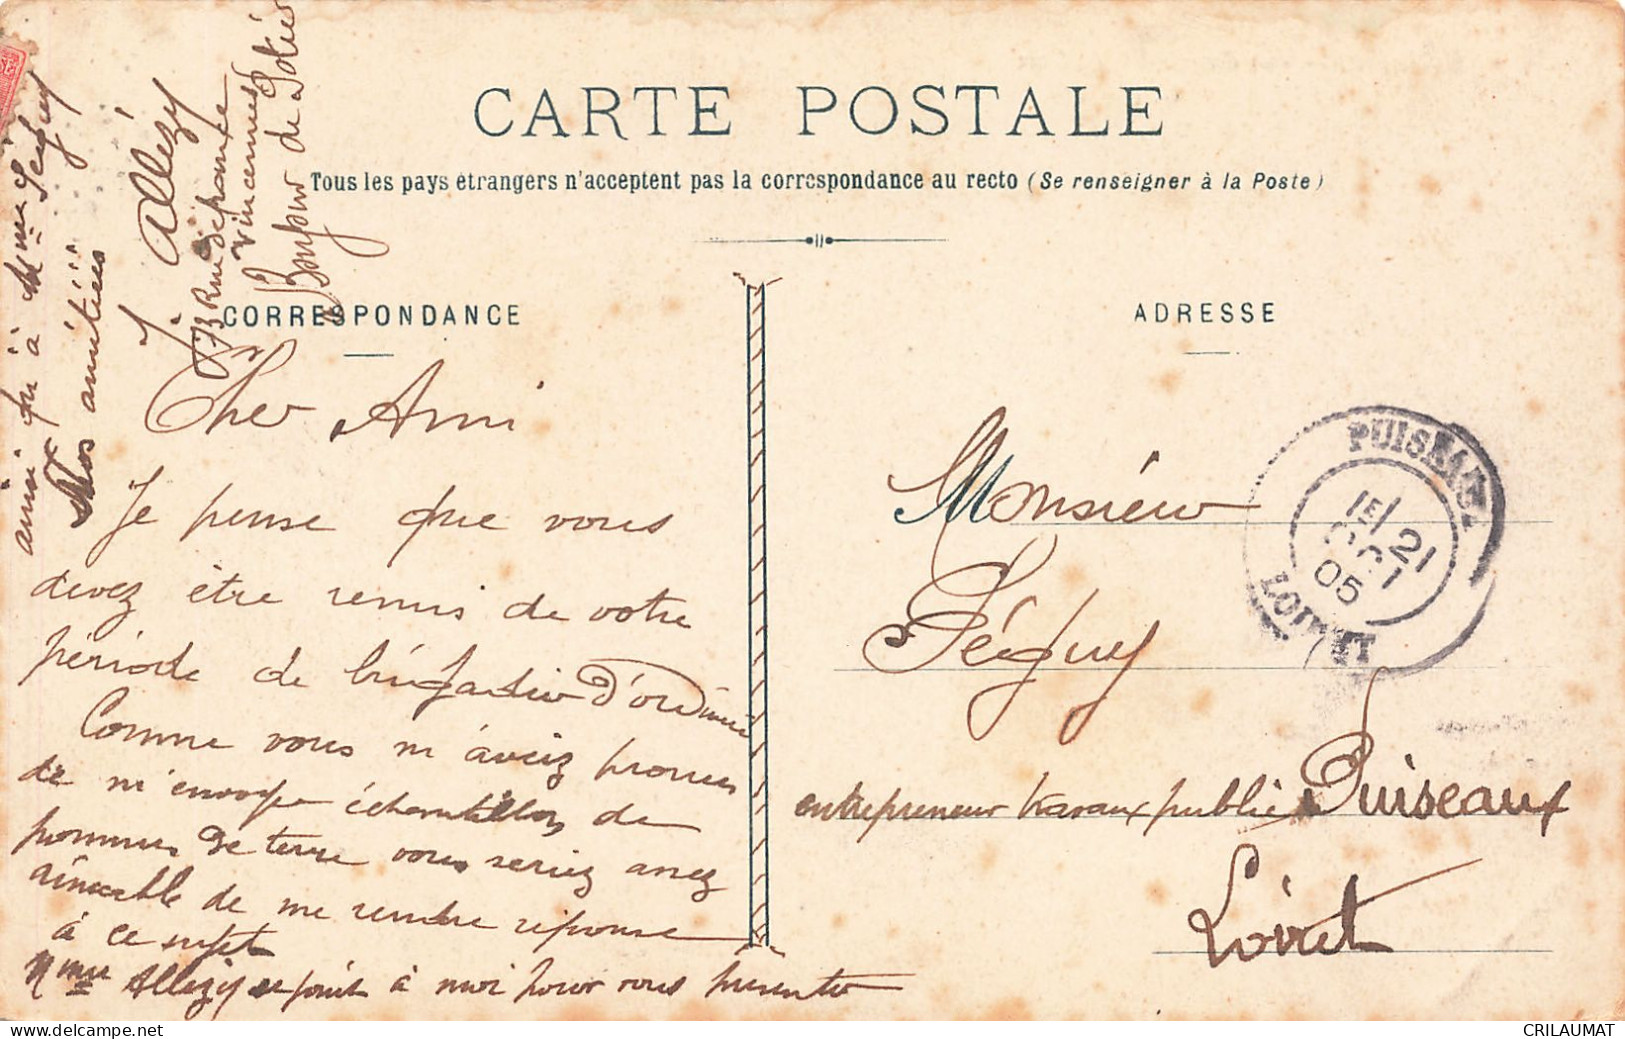 CARTE POSTALE
Tous les pays étrangers n'acceptent pas la correspondance au recto (Se renseigner à la Poste)
CORRESPONDANCE
ADRESSE
Cher Ami
Je pense que vous
devez être remis de votre
période de brigadier d'ordinaire
Comme vous m'aveiz promis
de m'envoyer échantillons de
pommes de terre vous seriez assez
aimable de me rendre réponse
à ce sujet
Mme Allezy se joint à moi pour vous présenter
ainsi qu'à Mme Séguy
Nos amitiées
J. Allézy
73 Rue
Vincennes
Bonjour de Potier
Monsieur
Séguy
entrepreneur travaux publics Puiseaux
Loiret
PUISEAUX
1E/21
OCT
05
LOIRET
CRILAUMAT